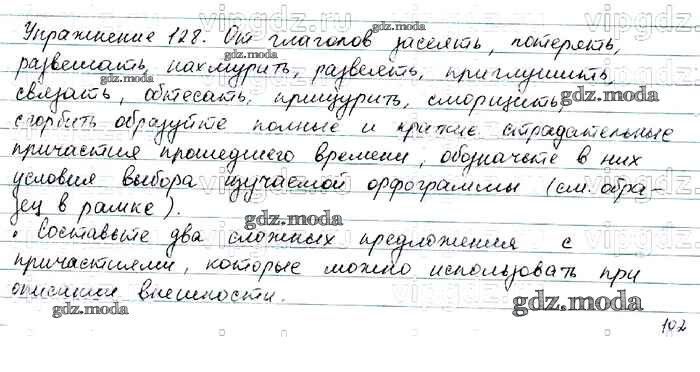 Упражнение 128. От глаголов засеять, потерять,
развешать, нахмурить, развеять, приглушить,
связать, обтесать, прищурить, сморщить,
сгорбить образуйте полные и краткие страдательные
причастия прошедшего времени, обозначьте в них
условия выбора изучаемой орфограммы (см. обра-
зец в рамке).
• Составьте два сложных предложения с
причастиями, которые можно использовать при
описании внешности.
102
gdz.moda
gdz.moda
gdz.moda
gdz.moda
gdz.moda
gdz.moda
gdz.moda
gdz.moda
vipgdz.ru